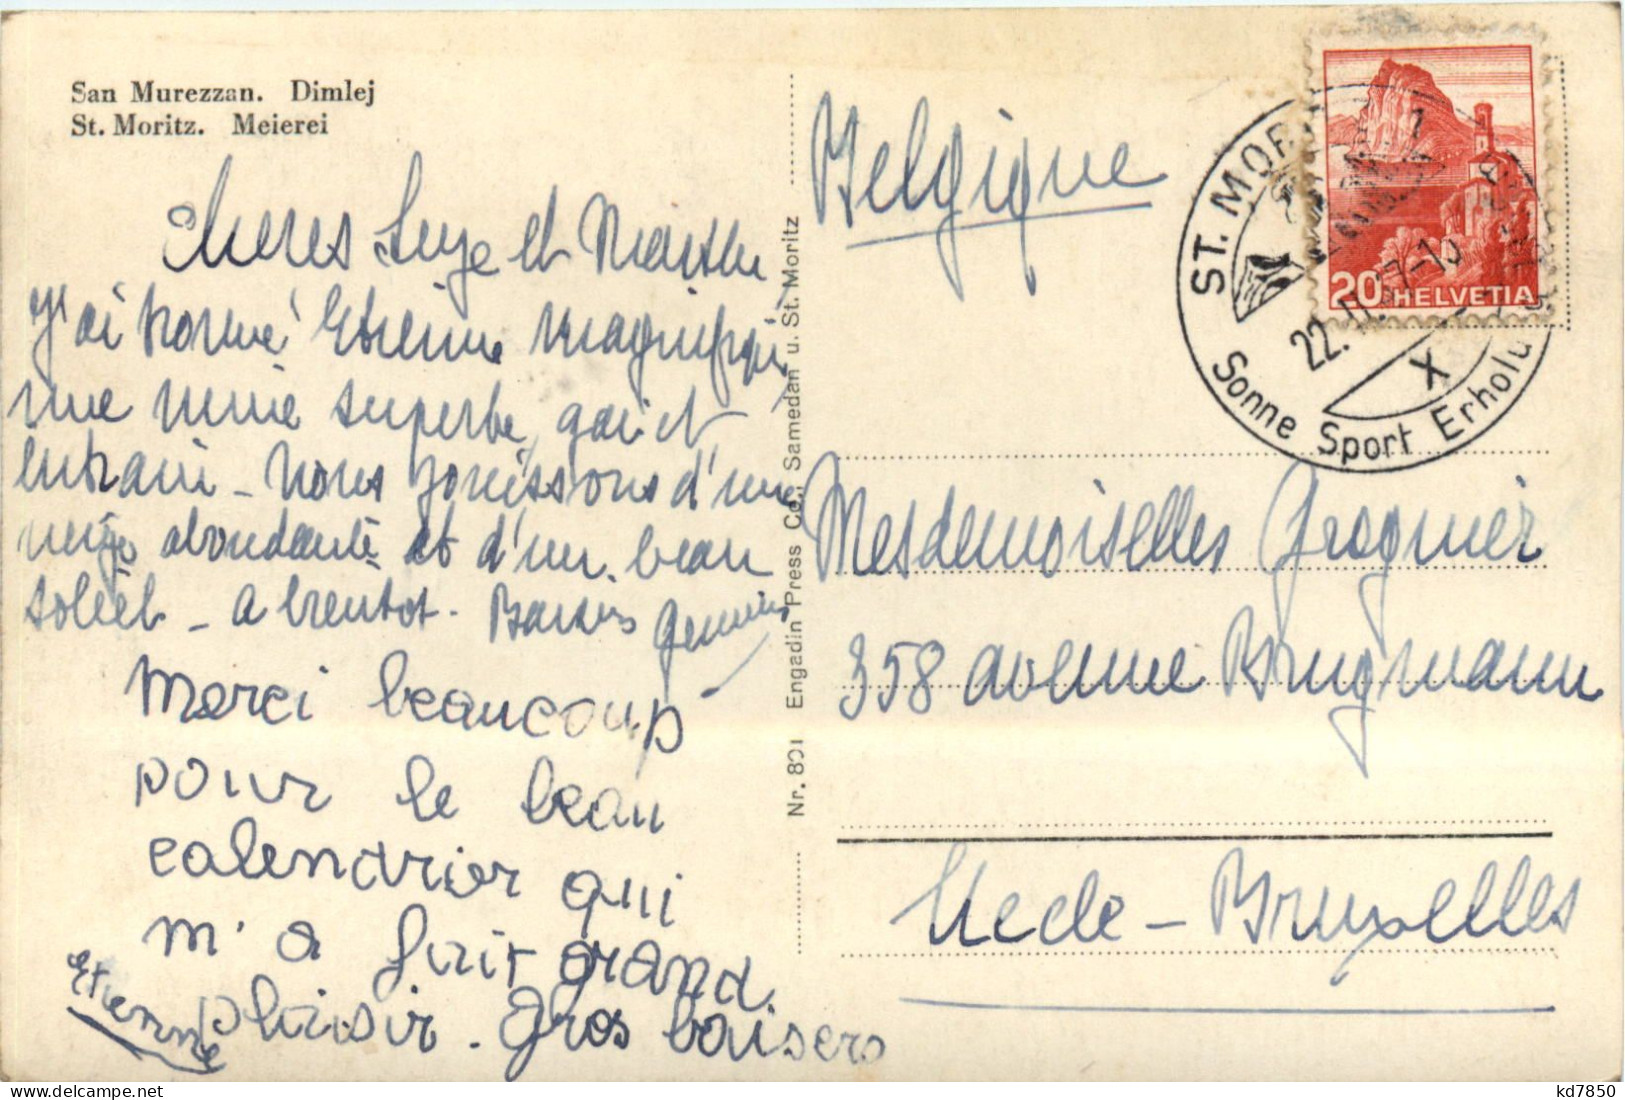 San Murezzan. Dimlej
St. Moritz. Meierei
Cheres Suze et Marthe
J'ai trouvé Etienne magnifique
une mine superbe, gai et
entrain - Nous jouissons d'une
neige abondante et d'un beau
soleil - A bientot. Baisers
Merci beaucoup
pour le beau
calendrier qui
m'a fait grand
plaisir. Gros baisers
Etienne
Nr. 801 Engadin Press Co., Samedan u. St. Moritz
Belgique
ST. MOR
22. II. 37-10
X
Sonne Sport Erholu
20 HELVETIA
Mesdemoiselles Grognier
358 avenue Brugmann
Uccle - Bruxelles
kd7850